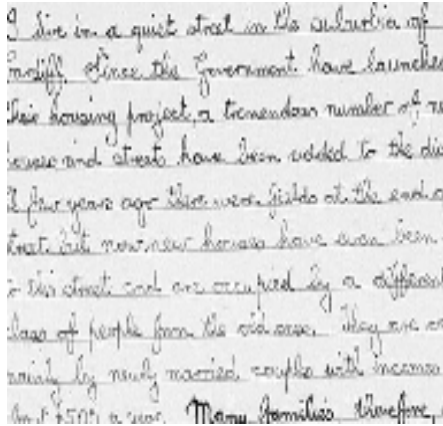 I live in a quiet street in the suburbia of
Cardiff. Since the Government have launched
their housing project, a tremendous number of
houses and street have been added to the
A few years ago there were fields at the end
street but now new houses have even been
to this street and are occupied by a different
class of people from the old ones. They are
mainly by newly married couples with incomes
a year. Many families therefore,